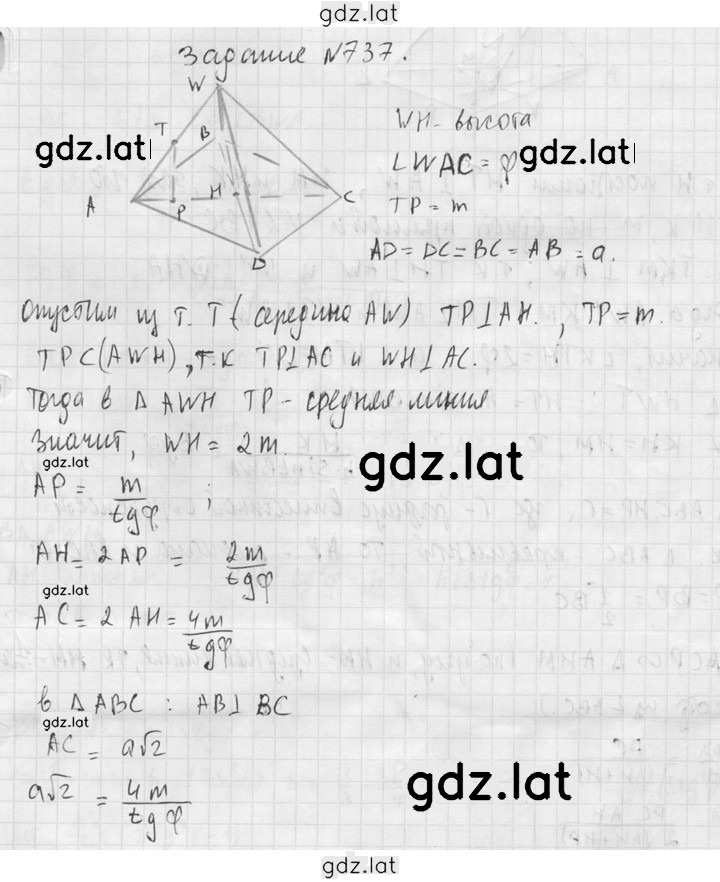 gdz.lat
Задание №737.
W
T
B
A
P
H
C
D
WH - высота
∠WAC = φ
TP = m
AD = DC = BC = AB = a.
gdz.lat
gdz.lat
Опустим из т. T (середина AW) TP⊥AH., TP = m.
TP⊂(AWH), т.к TP⊥AC и WH⊥AC.
Тогда в Δ AWH TP - средняя линия
Значит, WH = 2m.
gdz.lat
gdz.lat
AP = m/tgφ ;
AH = 2AP = 2m/tgφ
gdz.lat
AC = 2 AH = 4m/tgφ
в Δ ABC : AB⊥BC
gdz.lat
AC = a√2
a√2 = 4m/tgφ
gdz.lat
gdz.lat